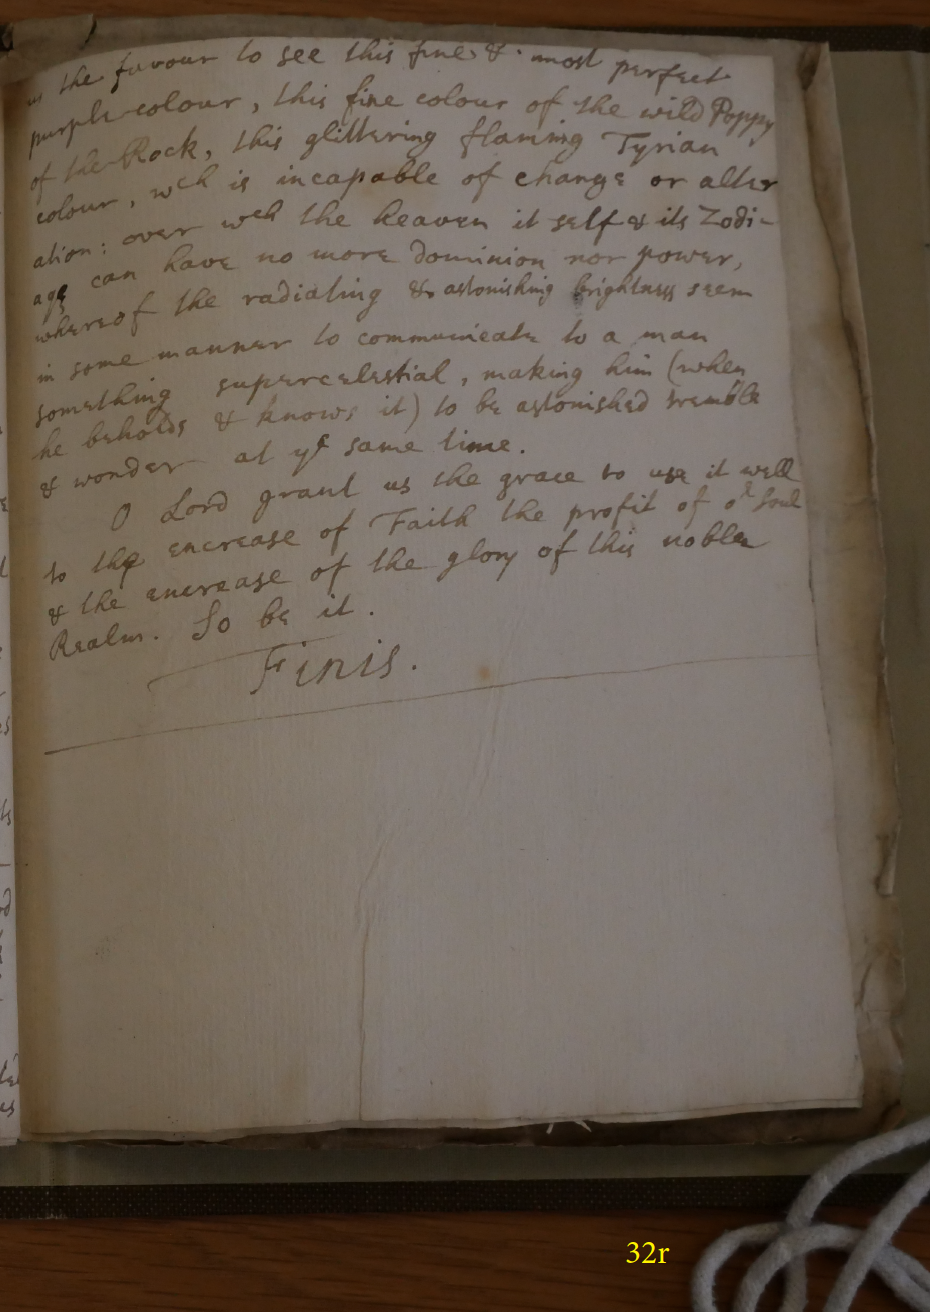 us the favour to see this fine & most perfect
purple colour, this fine colour of the wild Poppy
of the Rock, this glittering flaming Tyrian
colour, wch is incapable of change or alter
ation: over wch the heaven it self & its Zodi-
age can have no more dominion nor power,
whereof the radiating & astonishing brightness seem
in some manner to communicate to a man
something supercelestial, making him (when
he beholds & knows it) to be astonished tremble
& wonder at ye same time.
O Lord grant us the grace to use it well
to the encrease of Faith the profit of or Soul
& the encrease of the glory of this noble
Realm. So be it.
Finis.
32r